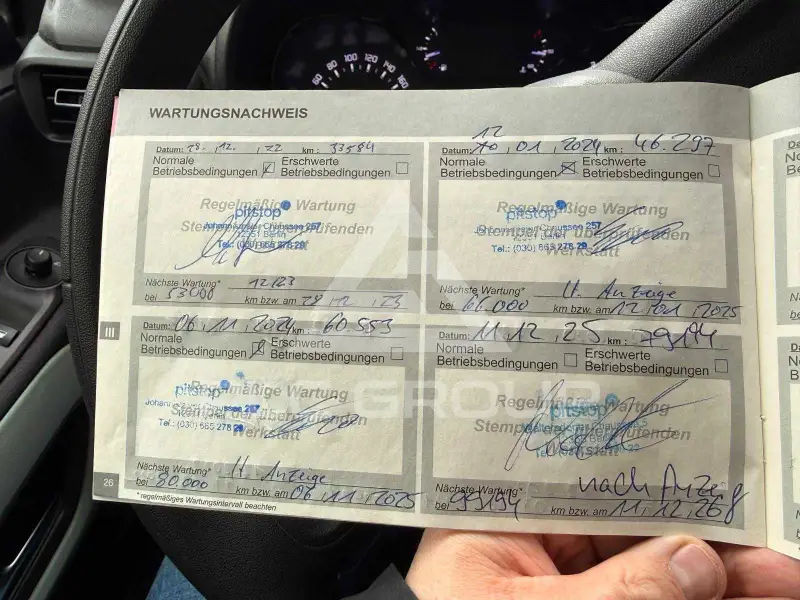 60 80 100 120 140 160
WARTUNGSNACHWEIS
Datum: 28. 12. 22 km: 33584
Normale Betriebsbedingungen
Erschwerte Betriebsbedingungen
Regelmäßige Wartung
Stempel der überprüfenden
Werkstatt
pitstop
12351 Berlin
Tel.: (030) 665 278 29
Nächste Wartung* 12/23
bei 53000 km bzw. am 28.12.23
12
Datum: 10.01.2024 km: 46.297
Normale Betriebsbedingungen
Erschwerte Betriebsbedingungen
Regelmäßige Wartung
Stempel der überprüfenden
Werkstatt
pitstop
Chaussee 257
12351 Berlin
Tel.: (030) 665 278 29
Nächste Wartung* n. Anzeige
bei 66.000 km bzw. am 12.01.2025
III
Datum: 06.11.2024 km: 60.553
Normale Betriebsbedingungen
Erschwerte Betriebsbedingungen
Regelmäßige Wartung
Stempel der überprüfenden
Werkstatt
pitstop
Tel.: (030) 665 278 29
Nächste Wartung* n. Anzeige
bei 80.000 km bzw. am 06.11.2025
Datum: 11.12.25 km: 79194
Normale Betriebsbedingungen
Erschwerte Betriebsbedingungen
Regelmäßige Wartung
Stempel der überprüfenden
Werkstatt
pitstop
Nächste Wartung* nach
bei 99194 km bzw. am 11.12.26
26
*regelmäßiges Wartungsintervall beachten
GROUP